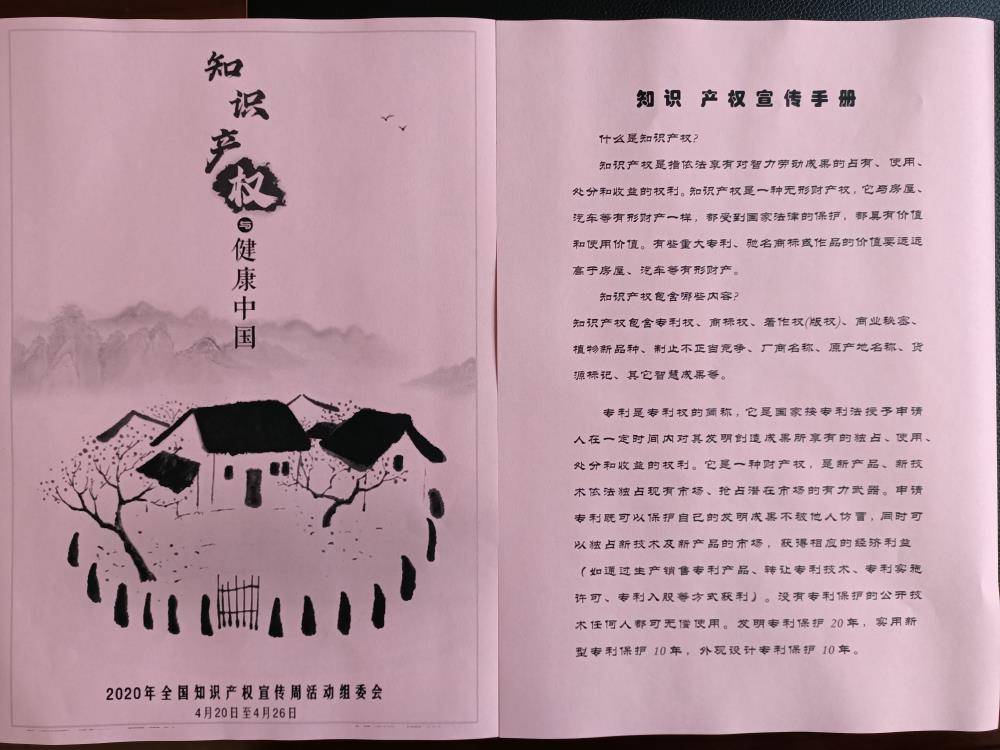 知识产权
与
健康中国
2020年全国知识产权宣传周活动组委会
4月20日至4月26日
知识 产权宣传手册
什么是知识产权?
知识产权是指依法享有对智力劳动成果的占有、使用、
处分和收益的权利。知识产权是一种无形财产权，它与房屋、
汽车等有形财产一样，都受到国家法律的保护，都具有价值
和使用价值。有些重大专利、驰名商标或作品的价值要远远
高于房屋、汽车等有形财产。
知识产权包含哪些内容?
知识产权包含专利权、商标权、著作权(版权)、商业秘密、
植物新品种、制止不正当竞争、厂商名称、原产地名称、货
源标记、其它智慧成果等。
专利是专利权的简称，它是国家按专利法授予申请
人在一定时间内对其发明创造成果所享有的独占、使用、
处分和收益的权利。它是一种财产权，是新产品、新技
术依法独占现有市场、抢占潜在市场的有力武器。申请
专利既可以保护自己的发明成果不被他人仿冒，同时可
以独占新技术及新产品的市场，获得相应的经济利益
（如通过生产销售专利产品、转让专利技术、专利实施
许可、专利入股等方式获利）。没有专利保护的公开技
术任何人都可无偿使用。发明专利保护 20 年，实用新
型专利保护 10 年，外观设计专利保护 10 年。